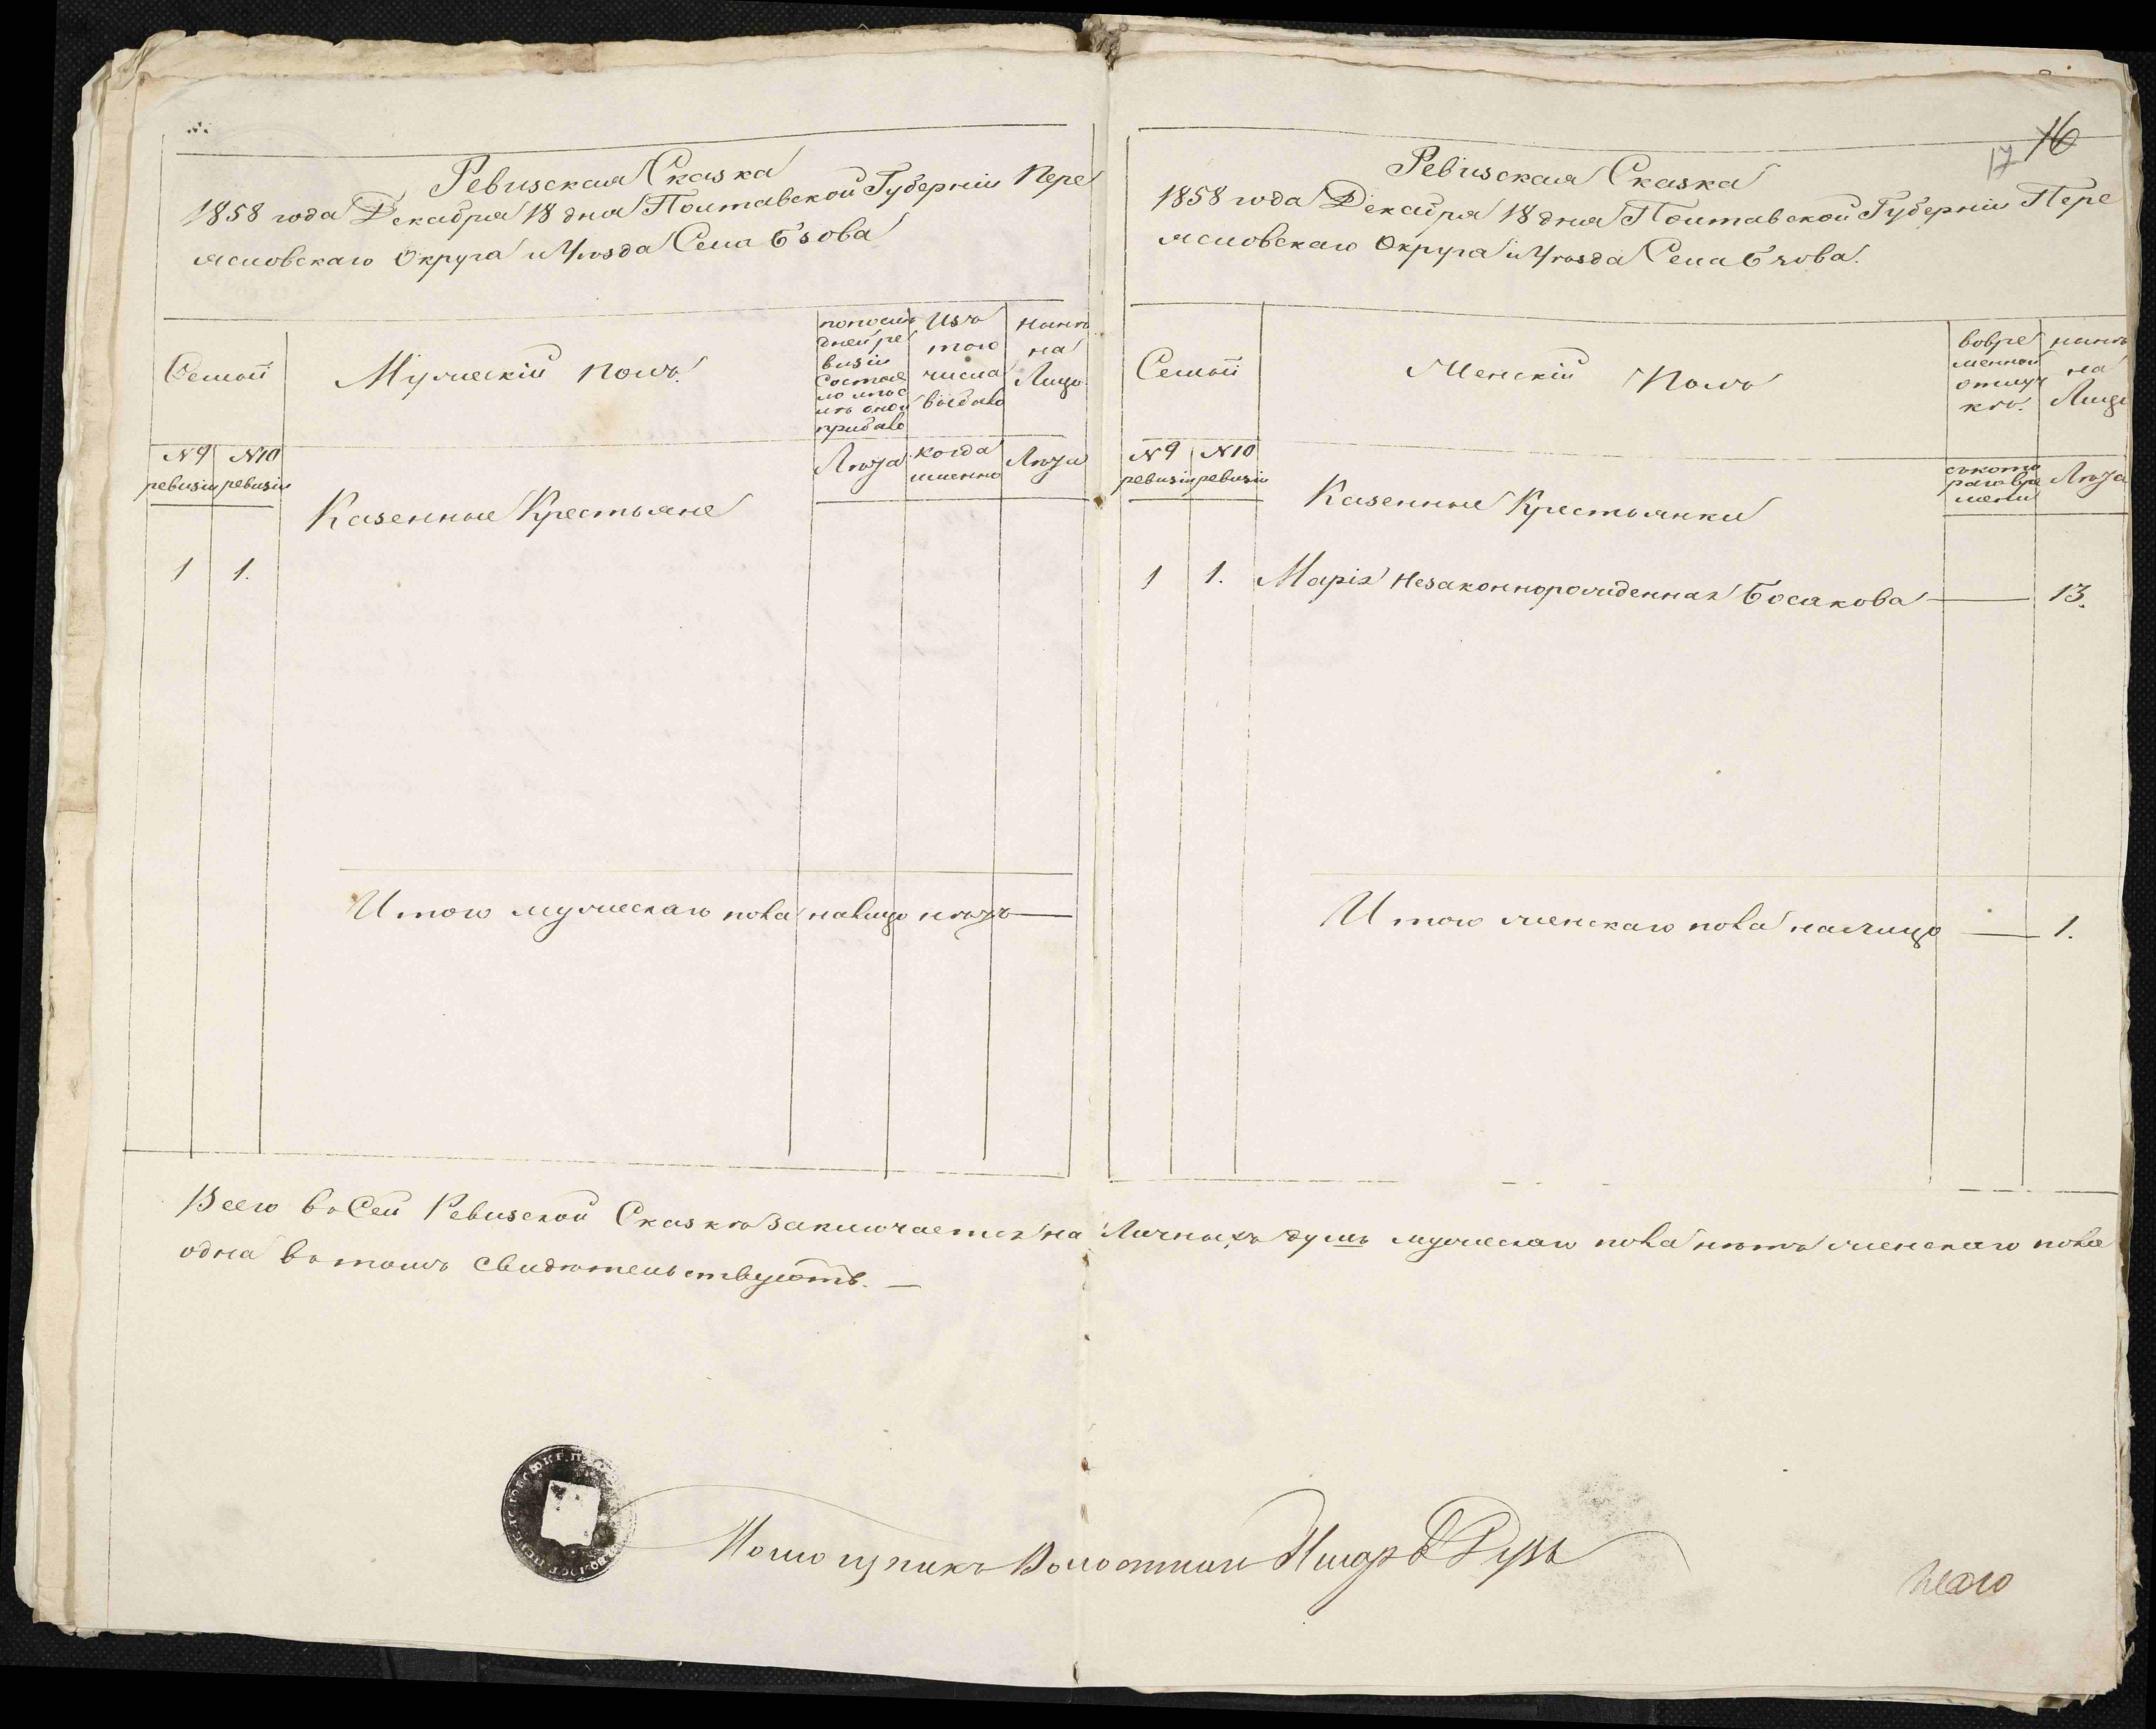 Ревизская Сказка
1858 года Декабря 18 дня Полтавской Губерніи Пере
яславскаго Округа и Уѣзда Села Бзова
Семьи
Мужескій полъ.
по послѣ
дней ре
визіи
состоя
ло и пос
лѣ оной
прибыло
Изъ
того
числа
выбыло
нынѣ
на
Лицо
№ 9 ревизіи
№ 10 ревизіи
Лѣта
когда
именно
Лѣта
Казенные Крестьяне
1 1.
Итого мужескаго пола налицо нѣтъ
16
17
Ревизская Сказка
1858 года Декабря 18 дня Полтавской Губерніи Пере
яславскаго Округа и Уѣзда Села Бзова.
Семьи
Женскій Полъ
вовре
менной
отлуч
кѣ.
нынѣ
на
Лицо
№ 9 ревизіи
№ 10 ревизіи
съкото
раго вре
мени
Лѣта
Казенные Крестьянки
1 1. Марія незаконнорожденная Босакова 13.
Итого женскаго пола налицо 1.
Всего въ Сей Ревизской Сказкѣ Заключается на Личныхъ душъ мужескаго пола нѣтъ женскаго пола
одна въ томъ свидѣтельствуютъ.
Помощникъ Волостнаго Писаря